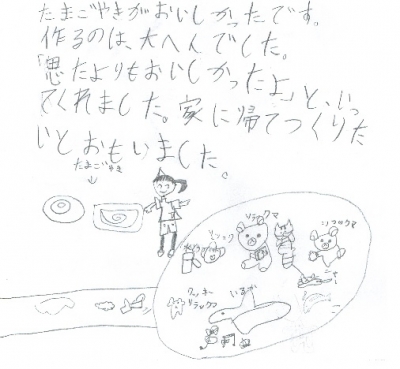 たまごやきがおいしかったです。
作るのは、大へんでした。
「思たよりもおいしかったよ」と、いっ
てくれました。家に帰てつくりた
いとおもいました。
たまごやき
リラックマ
クッキー
リラックマ
いるか